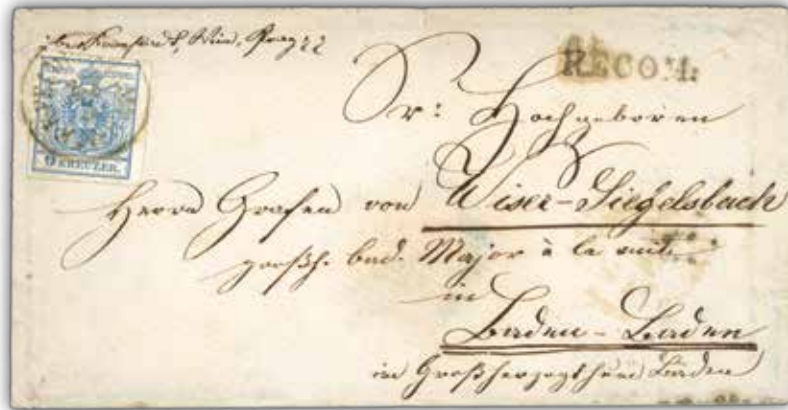 Wien, Prag
RECOM:
9 KREUZER.
Sr: Hochgeboren
Herrn Grafen von Wiser-Siegelsbach
großh. bad. Major à la suite
in
Baden-Baden
im Großherzogthum Baden